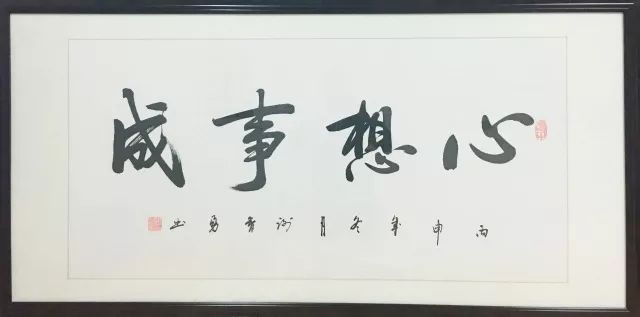 心想事成
丙申年冬月谢青勇书